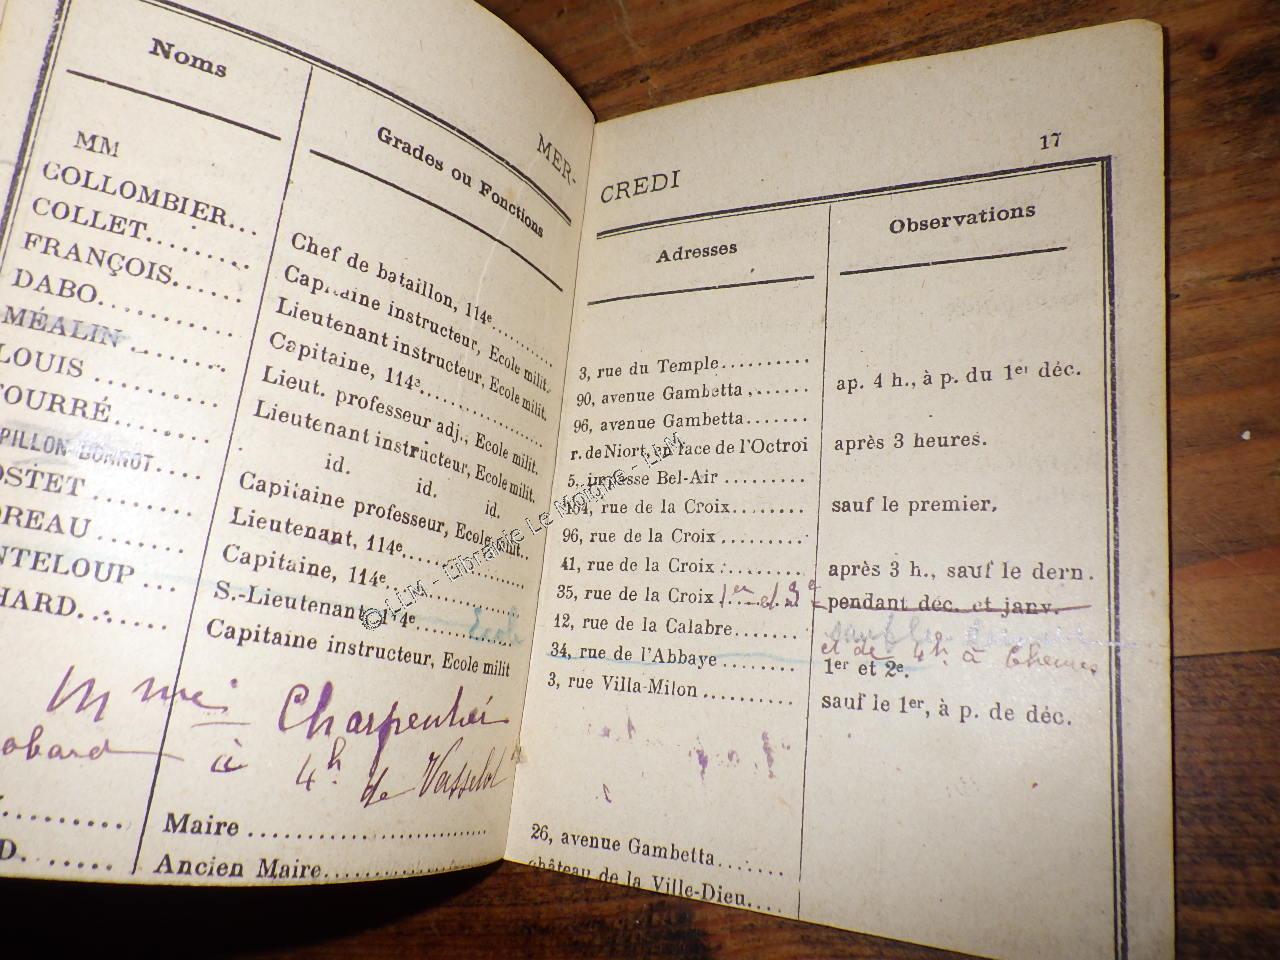 Noms
Grades ou Fonctions
MER-
MM
COLLOMBIER...
Chef de bataillon, 114e
COLLET
Capitaine instructeur, Ecole milit.
FRANÇOIS
Lieutenant instructeur, Ecole milit.
DABO
Capitaine, 114e
MÉALIN
Lieut. professeur adj., Ecole milit.
LOUIS
Lieutenant instructeur, Ecole milit.
OURRÉ
id. id. id.
PILLON-BONNOT
Capitaine professeur, Ecole milit..
OSTET
Lieutenant, 114e
REAU
Capitaine, 114e
NTELOUP
S.-Lieutenant, 114e
HARD
Capitaine instructeur, Ecole milit
Mme Charpentier
à 4h de Vasselot
Maire
D.
Ancien Maire
17
CREDI
Adresses
Observations
3, rue du Temple
90, avenue Gambetta
ap. 4 h., à p. du 1er déc.
96, avenue Gambetta
r. de Niort, en face de l'Octroi
après 3 heures.
5, impasse Bel-Air
164, rue de la Croix
sauf le premier,
96, rue de la Croix
41, rue de la Croix
après 3 h., sauf le dern.
35, rue de la Croix
1er et 3e
pendant déc. et janv.
12, rue de la Calabre
et de 4h à
34, rue de l'Abbaye
1er et 2e.
3, rue Villa-Milon
sauf le 1er, à p. de déc.
26, avenue Gambetta
château de la Ville-Dieu
© LLM - Librairie Le Moigne - LLM